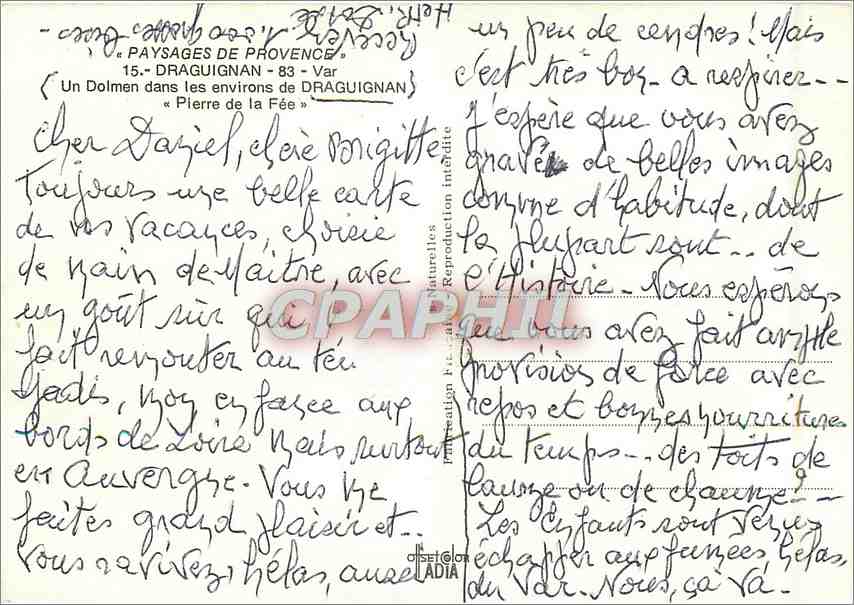 Recevez 1.000 grosses bises -
« PAYSAGES DE PROVENCE »
15.- DRAGUIGNAN - 83 - Var
(Un Dolmen dans les environs de DRAGUIGNAN)
« Pierre de la Fée »
Cher Daniel, chère Brigitte
Toujours une belle carte
de vos vacances, choisie
de main de Maître, avec
un goût sûr qui
fait remonter au
Jadis, mon enfance aux
bords de Loire mais surtout
en Auvergne. Vous me
faites grand plaisir et..
vous ravivez, hélas, aussi
un peu de cendres! Mais
c'est très bon - a respirer - -
J'espère que vous avez
gravé de belles images
comme d'habitude, dont
la plupart sont .. de
l'Histoire - Nous espérons
que vous avez fait ample
provision de force avec
repos et bonnes nourritures
du temps -.. des toits de
lauze ou de chaume? - -
Les Enfants sont venus
échapper aux fumées, hélas,
du Var. Nous, ça va -
Publication Naturelles
Reproduction interdite
OFFSET COLOR
LADIA
CPAPHIL